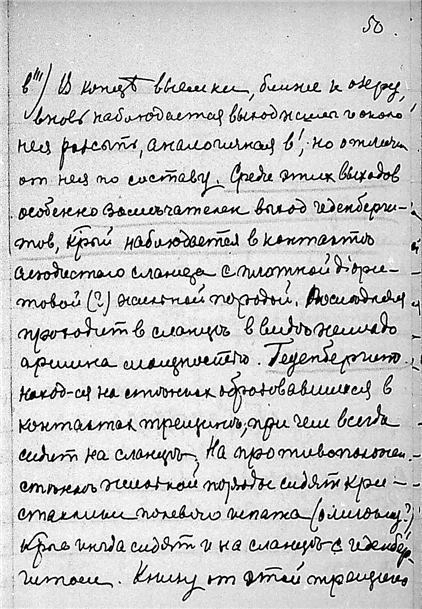 50.
в''') В концѣ выемки, ближе к озеру,
вновь наблюдается выход жилы и около
нея розсыпь, аналогичная в', но отличн.
от нея по составу. Среди этих выходов
особенно замѣчателен выход геденберги-
тов, крый наблюдается в контактѣ
слюдистаго сланца с плотной діори-
товой (?) жильной породой. Последняя
проходит в сланцѣ в видѣ жилы до
аршина мощностью. Геденбергит
наход-ся на стѣнках образовавшихся в
контактах трещин, при чем всегда
сидят на сланцѣ. На противоположн.
стѣнкѣ жильной породы сидят кри-
сталлики полеваго шпата (олигокл.?)
крые иногда сидят и на сланцѣ с геденбер-
гитом. Книзу от этой трещины